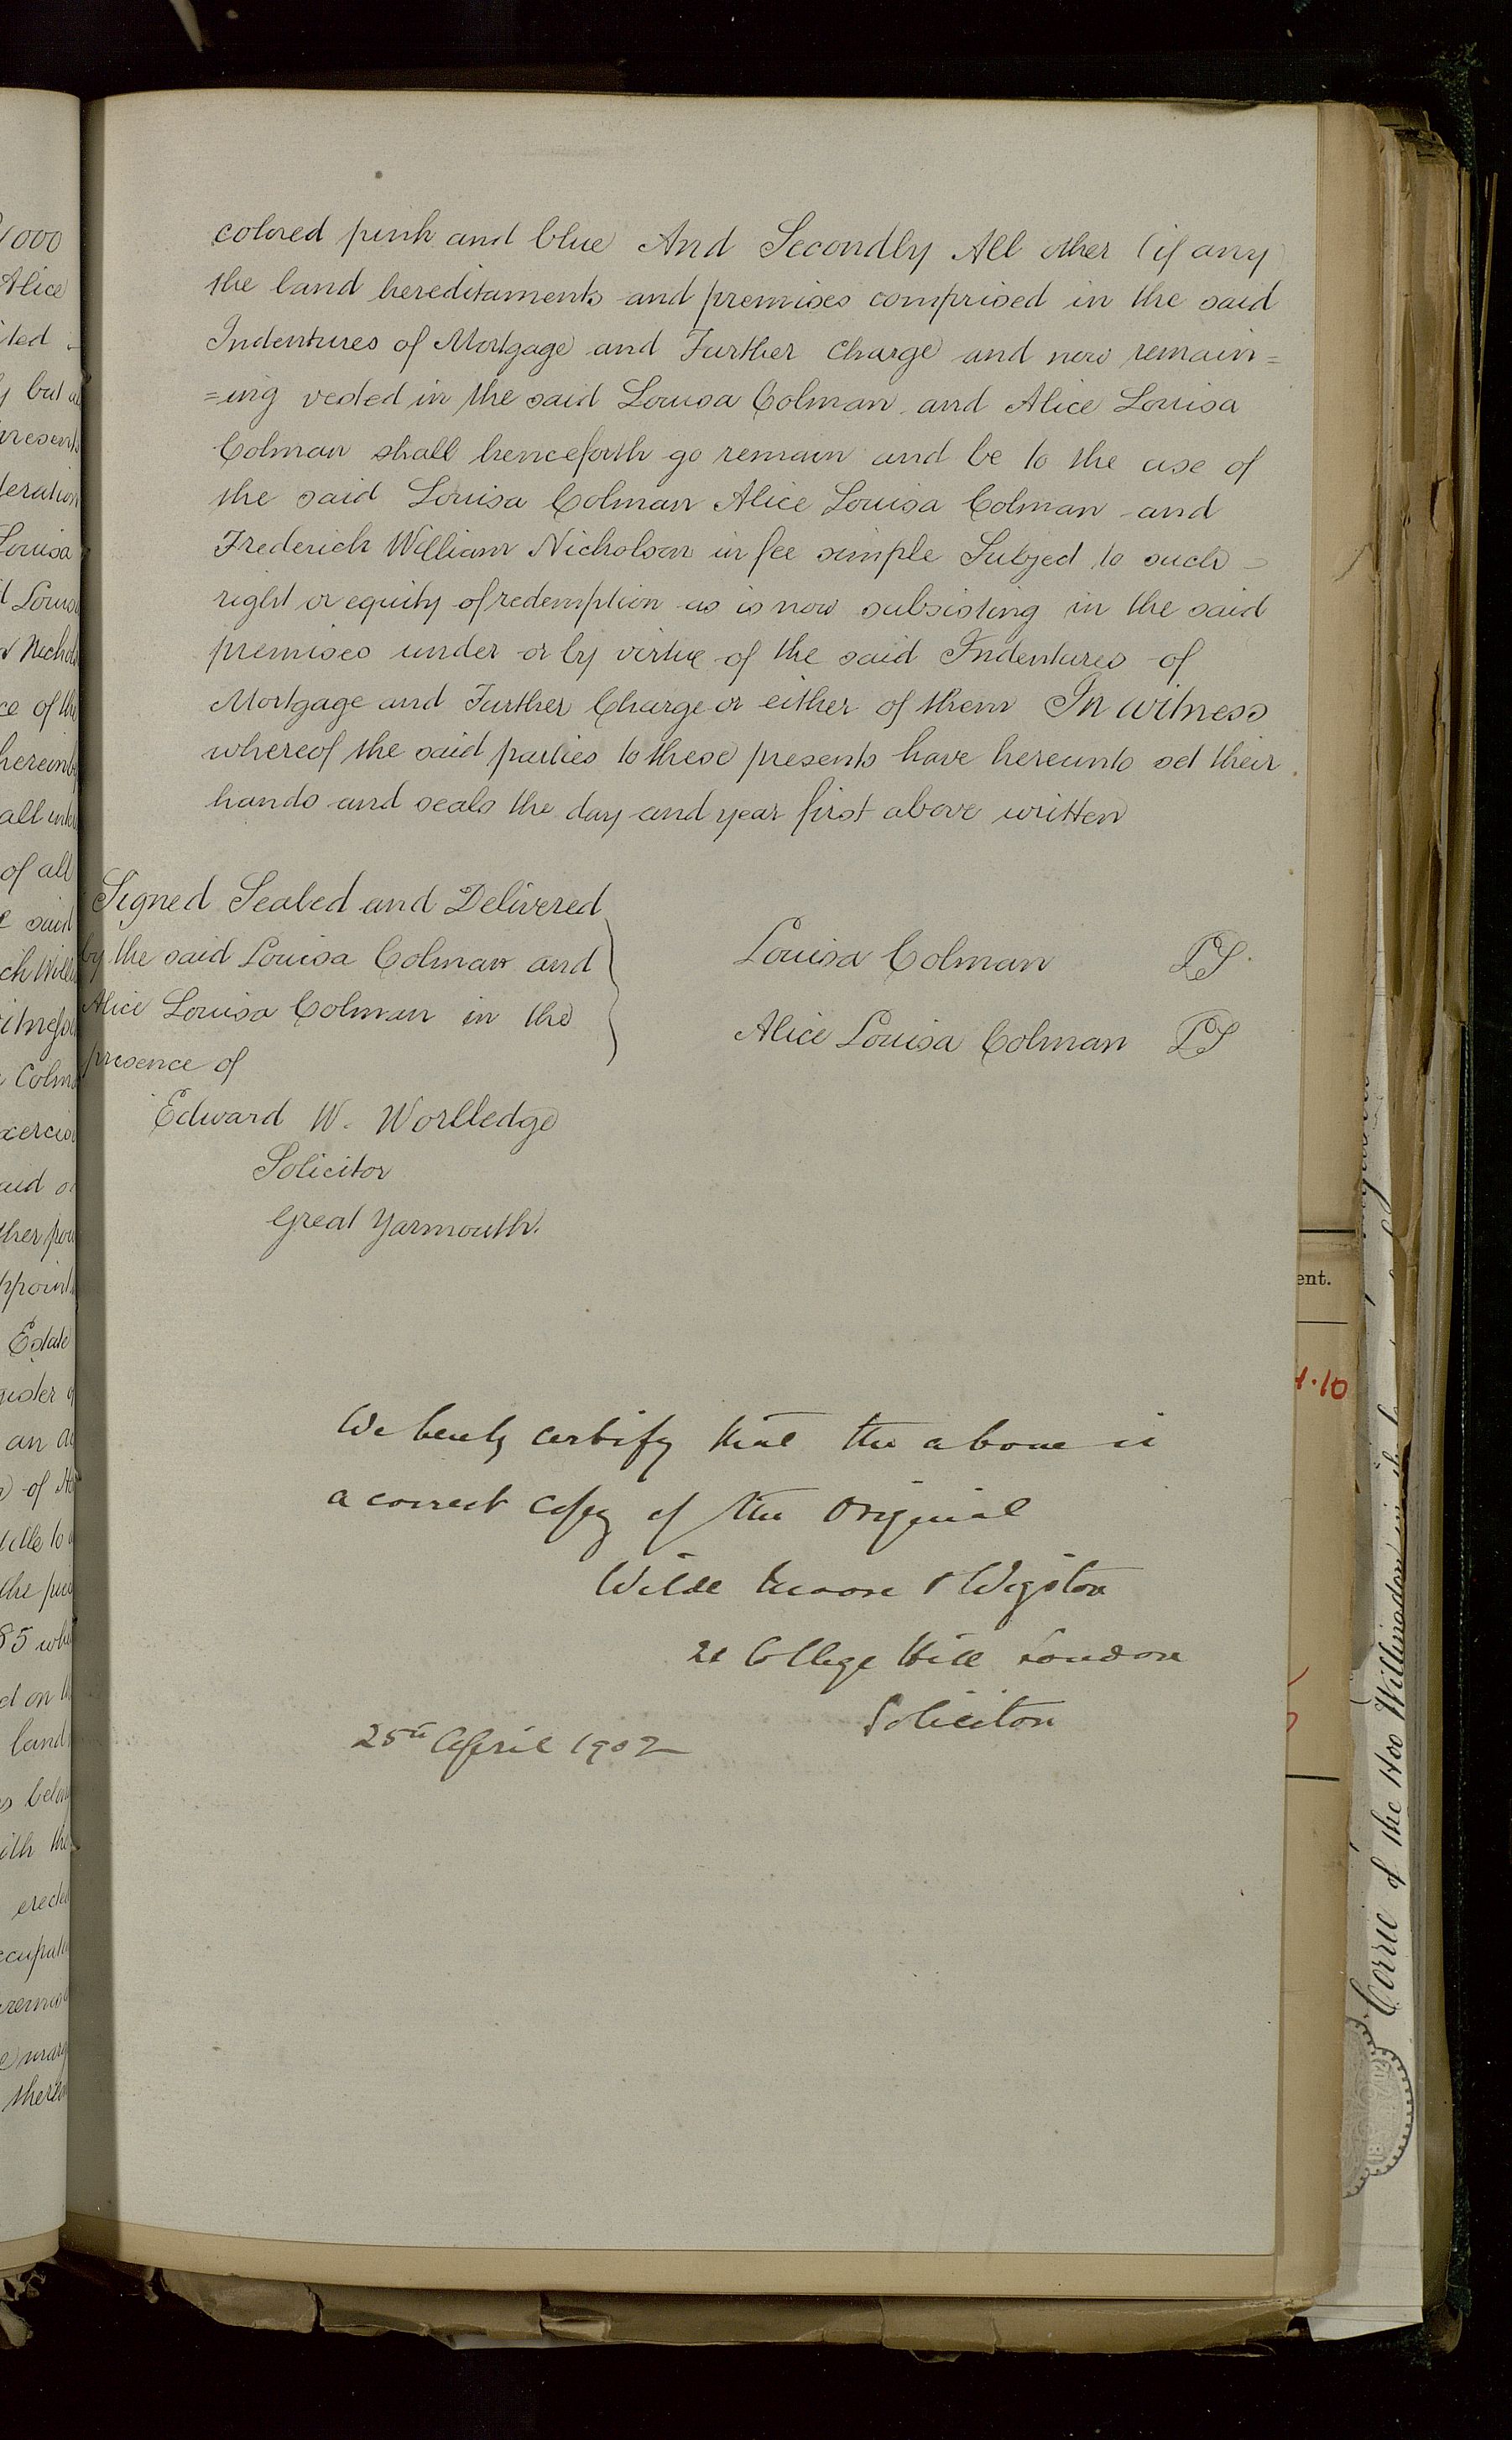 colored pink and blue And Secondly All other (if any)
the land hereditaments and premises comprised in the said
Indentures of Mortgage and Further Charge and now remain=
=ing vested in the said Louisa Colman and Alice Louisa
Colman shall henceforth go remain and be to the use of
the said Louisa Colman Alice Louisa Colman and
Frederick William Nicholson in fee simple Subject to such =
right or equity of redemption as is now subsisting in the said
premises under or by virtue of the said Indentures of
Mortgage and Further Charge or either of them In witness
whereof the said parties to these presents have hereunto set their
hands and seals the day and year first above written
Signed Sealed and Delivered
by the said Louisa Colman and
Alice Louisa Colman in the
presence of
Edward W. Worlledge
Solicitor
Great Yarmouth.
Louisa Colman LS.
Alice Louisa Colman LS
We hereby certify that the above is
a correct copy of the original
Wilde Moore & Wigston
21 College Hill London
Solicitors
25th April 1902
ent.
4.10
Corrie of the Hoo Willingdon in the